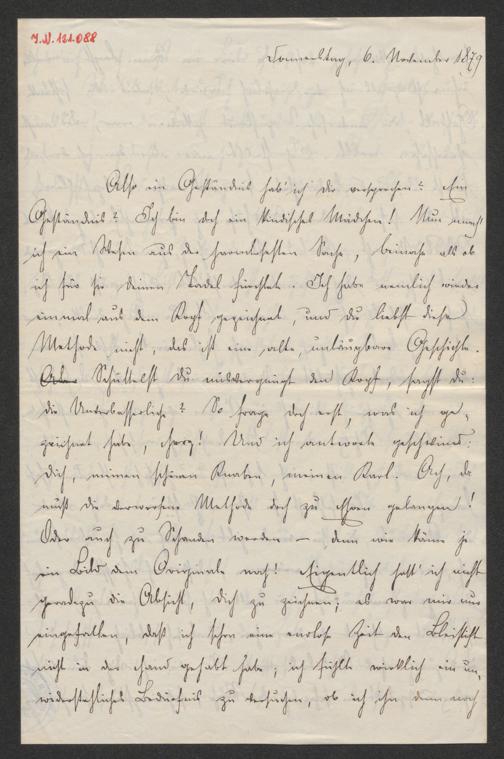 I.N. 121.088
Donnerstag, 6. November 1879
Also ein Geständnis hab' ich dir versprochen? Ein
Geständnis? Ich bin doch ein kindisches Mädchen! Nun mach'
ich ein Wesen aus der harmlosesten Sache, beinahe als ob
ich für sie deinen Tadel fürchtete. Ich habe nemlich wieder
einmal aus dem Kopf gezeichnet, und du liebst diese
Methode nicht, das ist eine alte, unläugbare Geschichte.
Aber Schüttelst Du mißvergnügt den Kopf, sagst du:
die Unverbesserliche? So frage doch erst, was ich ge-
zeichnet habe, Herz! Und ich antworte geschwind:
dich, meinen schönen Knaben, meinen Karl. Ach, da
muß die verworfene Methode doch zu Ehren gelangen!
Oder auch zu Schanden werden – denn wie käme je
ein Bild dem Originale nach! Eigentlich hatt' ich nicht
geradezu die Absicht, dich zu zeichnen; es war mir nur
eingefallen, daß ich schon eine endlose Zeit den Bleistift
nicht in der Hand gehabt habe; ich fühlte wirklich ein un-
widerstehliches Bedürfnis zu versuchen, ob ich ihn denn noch